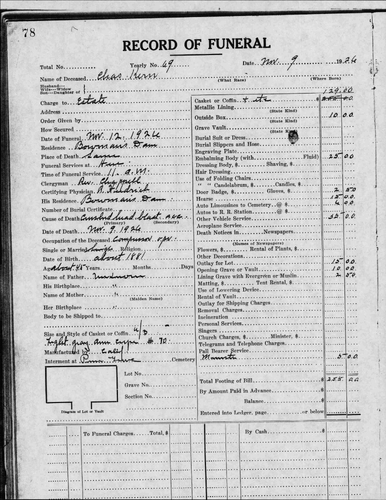 78
RECORD OF FUNERAL
Total No. Yearly No. 69 Date Nov. 9 1926
Name of Deceased Chas. Kern
(What Race) (Where Born)
Husband—Wife—Widow
Son—Daughter of
Charge to Estate
Address
Order Given by
How Secured
Date of Funeral Nov. 12, 1926
Residence Bowmans Dam
Place of Death Same
Funeral Services at
Time of Services 11 a.m.
Clergyman Rev.
Certifying Physician
His Residence Bowmans Dam
Number of Burial Certificate
Cause of Death
(Primary) (Secondary)
Date of Death Nov. 9 1926
Occupation of the Deceased Compressor opr.
Single or Married Single Religion
Date of Birth about 1881
Aged about 45 Years Months Days
Name of Father unknown
His Birthplace
Name of Mother
(Maiden Name)
Her Birthplace
Body to be Shipped to
Size and Style of Casket or Coffin 6/3
gray
Manufactured by Calif
Interment at Cemetery
Lot No.
Grave No.
Section No.
Diagram of Lot or Vault
129.00
Casket or Coffin
Metallic Lining
(State Kind)
Outside Box 10.00
(State Kind)
Grave Vault
(State Kind)
Burial Suit or Dress
Burial Slippers and Hose
Engraving Plate
Embalming Body (with Fluid) 25.00
Dressing Body, $ Shaving, $
Hair Dressing
Use of Folding Chairs, $
" " Candelabrum, $ Candles, $
Door Badge, $ Gloves, $ 2.50
Hearse 15.00
Auto Limousines to Cemetery @ $
Autos to R. R. Station @ $
Other Vehicle Service
Aeroplane Service
Death Notices in Newspapers
(Names of Newspapers)
Flowers, $ Rental of Plants, $
Other Decorations
Outlay for Lot 15.00
Opening Grave or Vault 10.00
Lining Grave with Evergreen or Muslin 2.50
Matting, $ Tent Rental, $
Use of Lowering Device
Rental of Vault
Outlay for Shipping Charges
Removal Charges
Incineration
Personal Services
Singers
Church Charges, $ Minister, $
Telegrams and Telephone Charges
Pall Bearer Service
Minister 5.00
Total Footing of Bill $ 255.00
By Amount Paid in Advance
Balance
Entered into Ledger, page or below
To Funeral Charges, Total, $ By Cash $